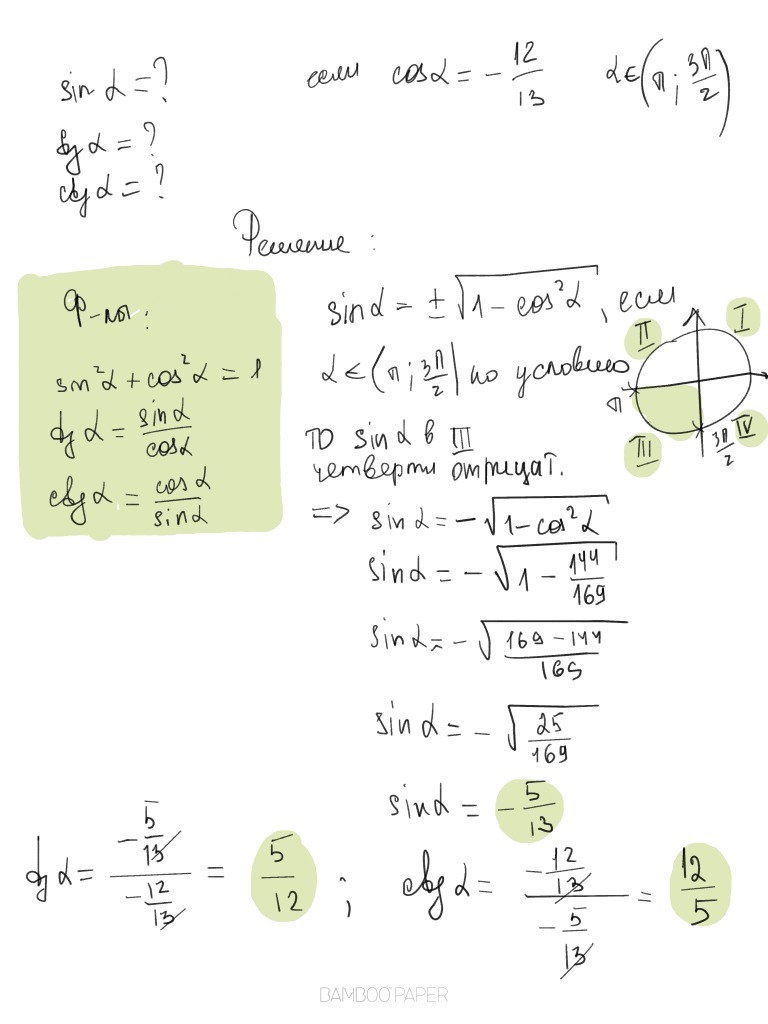 sin α = ? если cos α = - 12/13 α ∈ (π; 3π/2)
tg α = ?
ctg α = ?
Решение:
Ф-лы:
sin²α + cos²α = 1
tg α = sin α / cos α
ctg α = cos α / sin α
sin α = ± √(1 - cos²α), если
α ∈ (π; 3π/2) по условию
то sin α в III
четверти отрицат.
I
II
III
IV
π
3π/2
=> sin α = - √(1 - cos²α)
sin α = - √(1 - 144/169)
sin α = - √((169 - 144)/169)
sin α = - √(25/169)
sin α = - 5/13
tg α = (- 5/13)/(- 12/13) = 5/12 ; ctg α = (- 12/13)/(- 5/13) = 12/5
BAMBOO PAPER